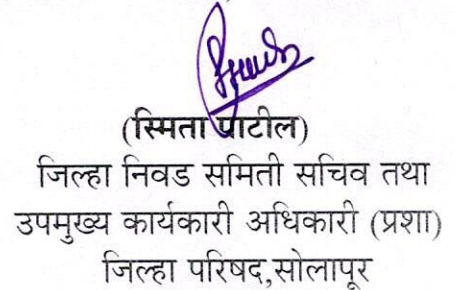 (स्मिता पाटील)
जिल्हा निवड समिती सचिव तथा
उपमुख्य कार्यकारी अधिकारी (प्रशा)
जिल्हा परिषद,सोलापूर